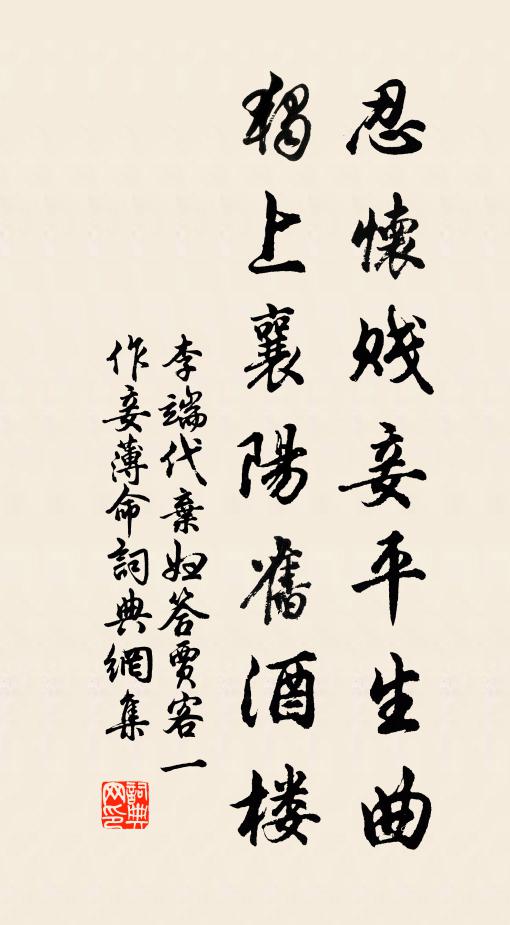 忍懷賤妾平生曲
獨上襄陽舊酒樓
李端代棄婦答賈客一
作妾薄命詞典網集
詞典网印